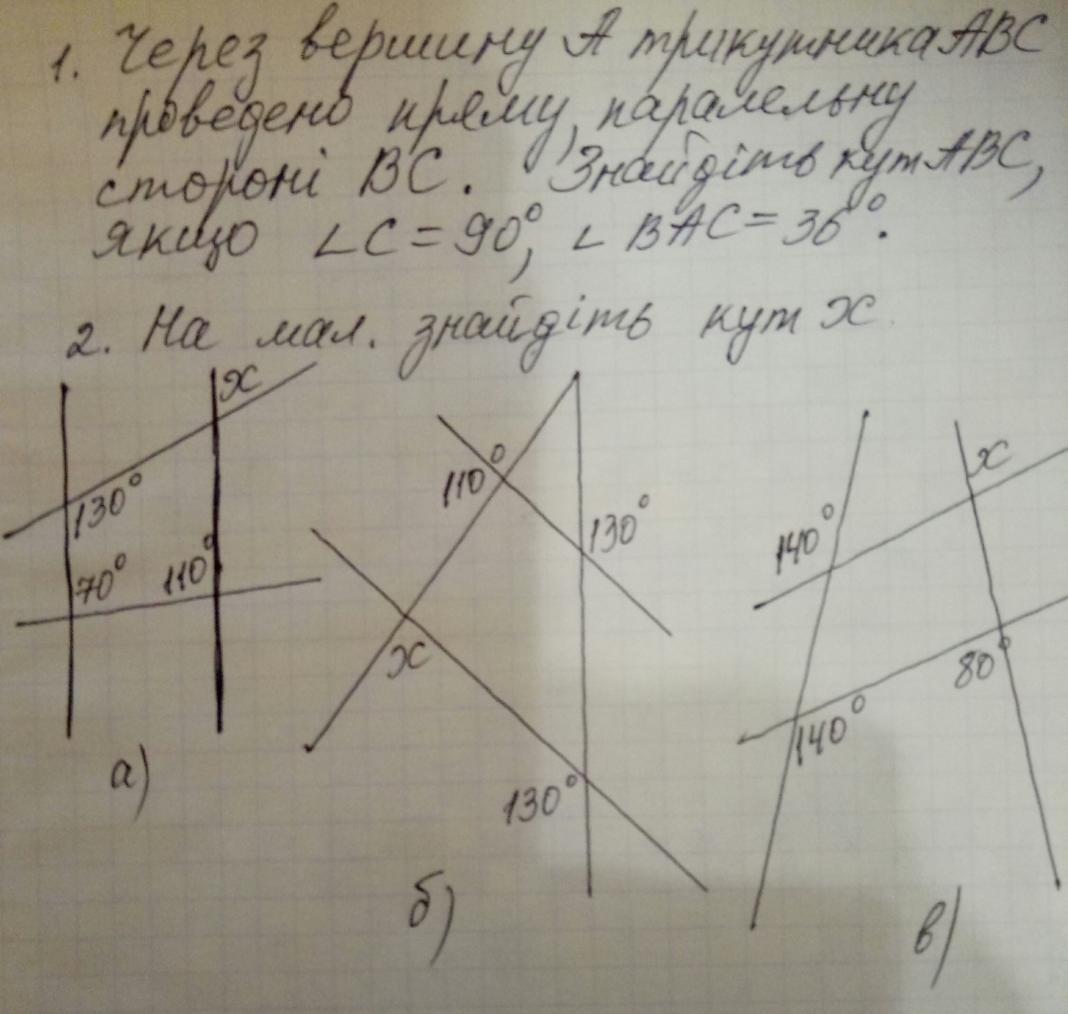 1. Через вершину А трикутника АВС
проведено пряму, паралельну
стороні ВС. Знайдіть кут АВС,
якщо ∠С = 90°, ∠ ВАС = 36°.
2. На мал. знайдіть кут х.
х
130°
70°
110°
а)
110°
130°
х
130°
б)
х
140°
80°
140°
в)